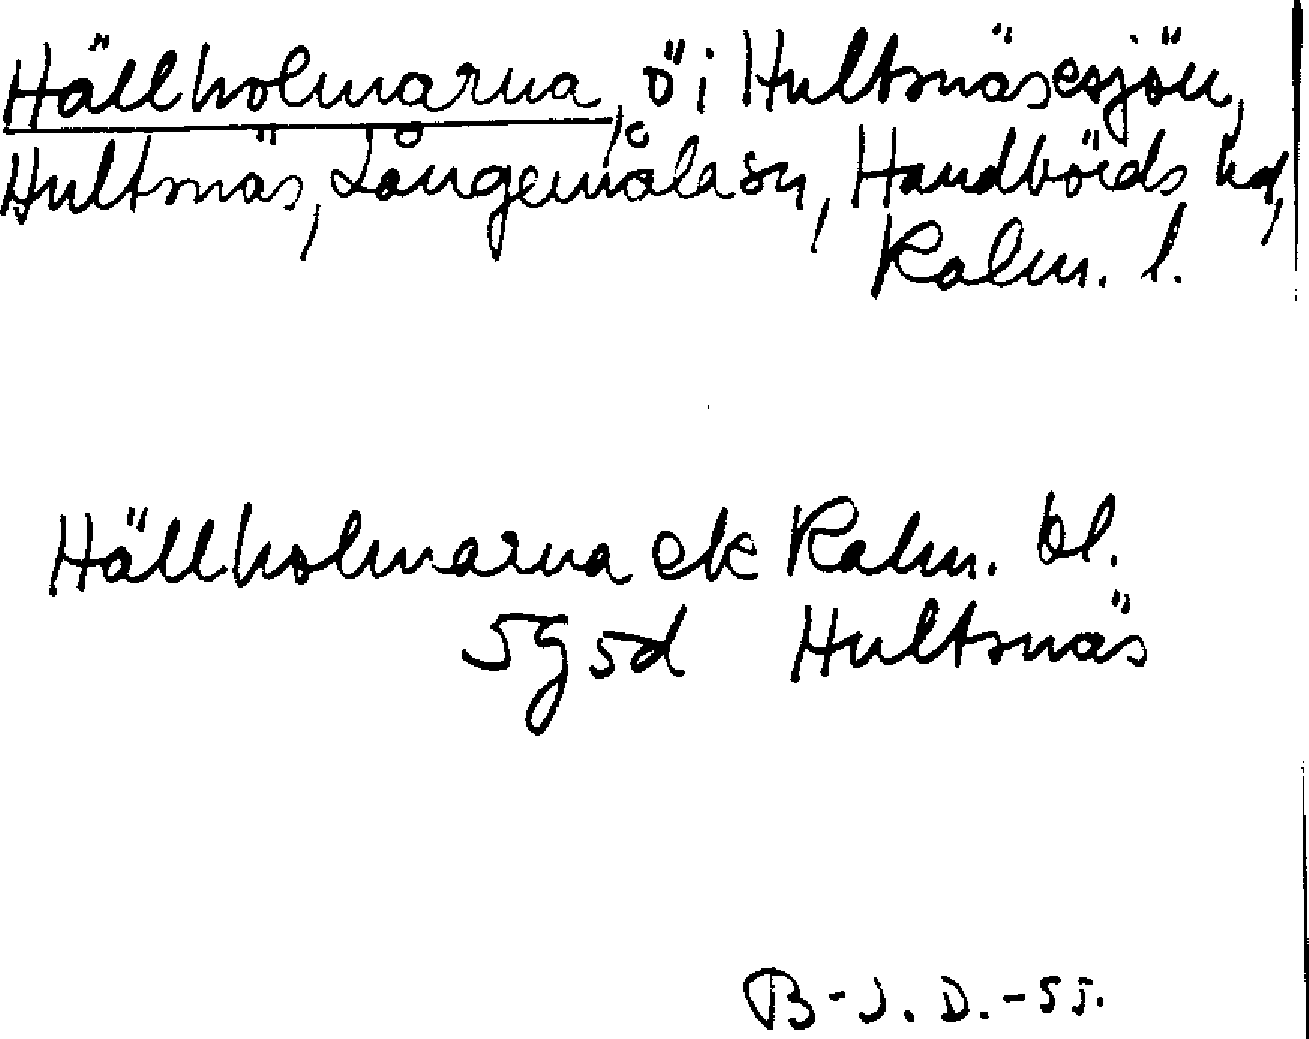 Hällholmarna, ö i Hultsnäsesjön,
Hultsnäs, Långemåla sn, Handbörds hd,
Kalm. l.
Hällholmarna ek Kalm. bl.
5g5d Hultsnäs
B-J. D. -55.